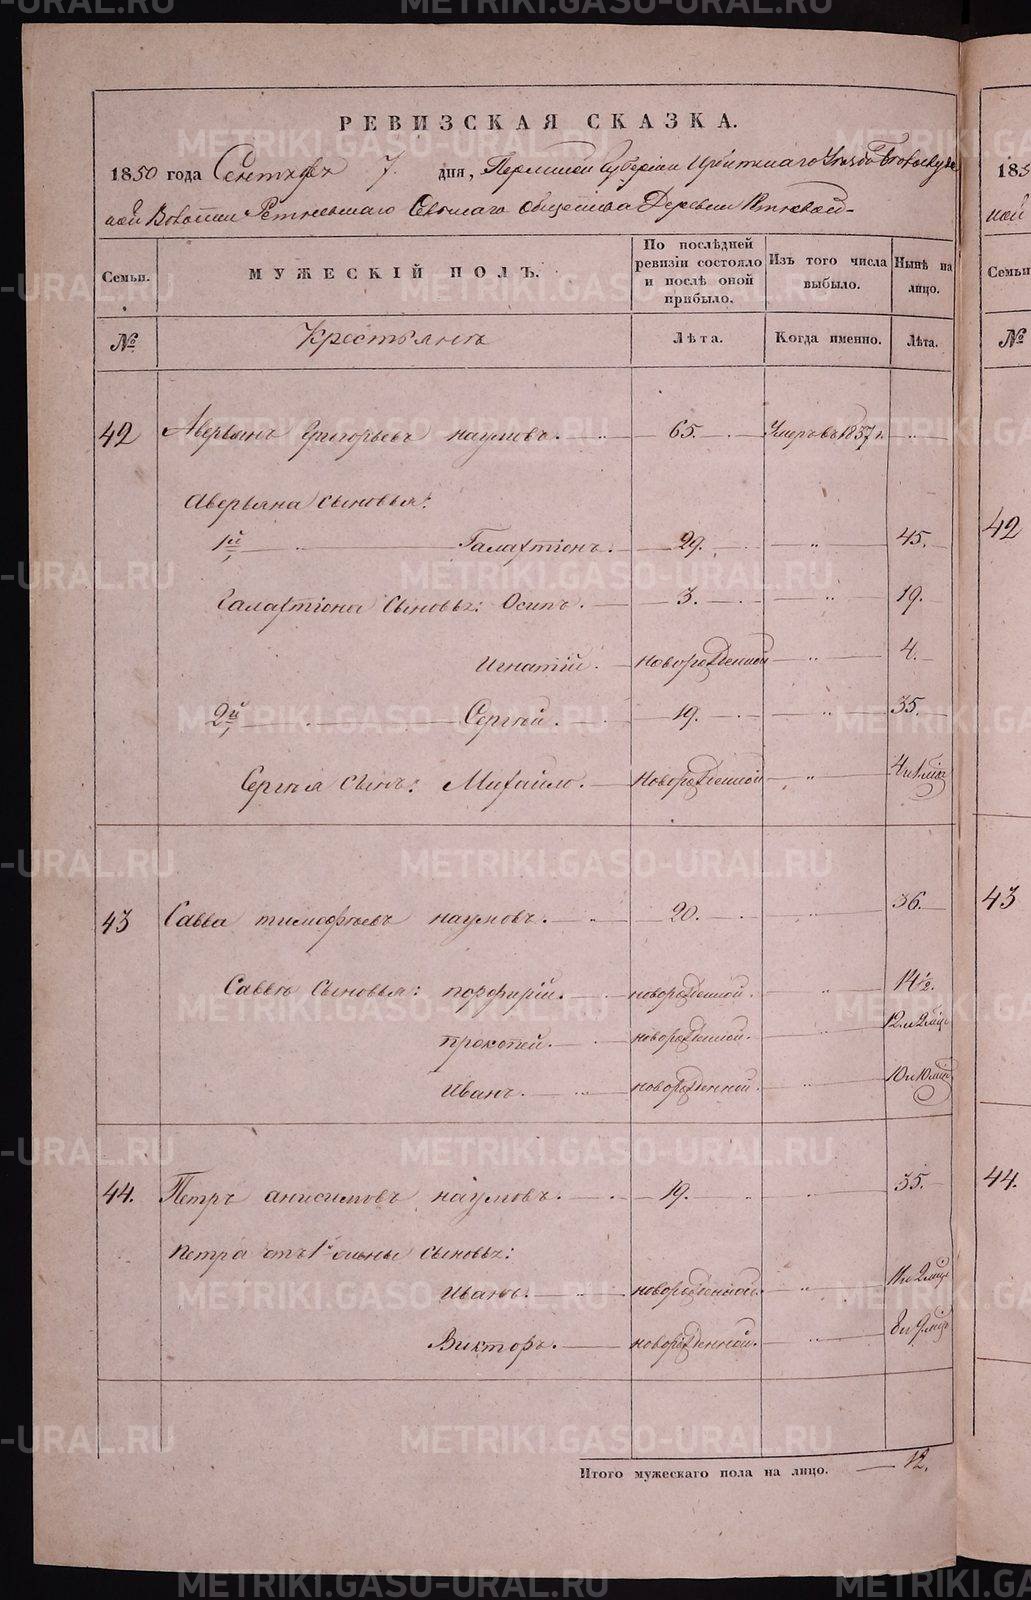 METRIKI.GASO-URAL.RU
РЕВИЗСКАЯ СКАЗКА.
1850 года Сентября 7 дня, Пермской Губернии Ирбитскаго Уезда
Волости Сельскаго Общества Деревни
Семьи. МУЖЕСКІЙ ПОЛЪ. По послѣдней ревизіи состояло и послѣ оной прибыло. Изъ того числа выбыло. Нынѣ на лицо.
№ Крестьянъ Лѣта. Когда именно. Лѣта.
42 Аверьянъ Григорьевъ наумовъ. 65. Умеръ въ 1837 г. „
Аверьяна сыновья:
1й Галахтіонъ. 29. „ 45.
Галахтіона сыновья: Осипъ. 3. „ 19.
Игнатій. новорожденной „ 4.
2й Сергѣй. 19. „ 35.
Сергѣя сынъ: Михайло. Новорожденной „ 4 и 1 мѣс
43 Савва тимофѣевъ наумовъ. 20. „ 36.
Саввы Сыновья: порфирій. новорожденной. „ 14½.
прокопей. новорожденной. „ 12 и 2 мѣс
Иванъ. новорожденной. „ 10 и 10 мѣс
44. Петръ анисимовъ наумовъ. 19. „ 35.
Петра отъ 1й жены сыновья:
Иванъ. новорожденной. „ 11 и 2 мѣс
Викторъ. новорожденной. „ 8 и 9 мѣс
Итого мужескаго пола на лицо. 12.
185
ной
Семьи
№
42
43
44.